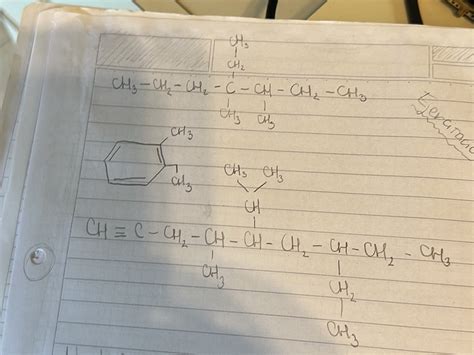 CH₃
CH₂
CH₃-CH₂-CH₂-C-CH-CH₂-CH₃
CH₃ CH₃
CH₃
CH₃
CH₃ CH₃
CH
CH≡C-CH₂-CH-CH-CH₂-CH-CH₂-CH₃
CH₃ CH₂
CH₃